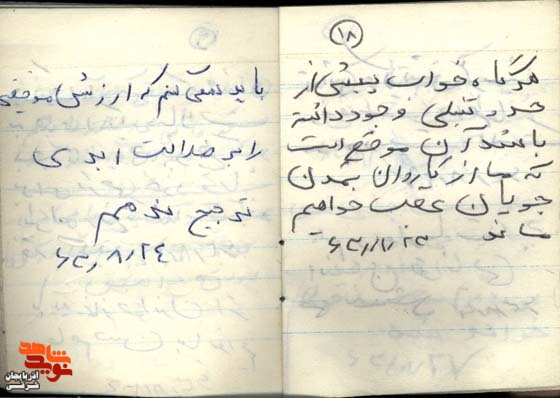 ۱۸
هرگاه خواب بیش از
حد و تنبلی وجود داشته
باشد آن موقع است
که ما از کاروان تمدن
جویان عقب خواهیم
ماند
باید سعی کنم که ارزش موقتی
را بر عدالت ابدی
ترجیح ندهم
۶۳٫۸٫۲۴
نوید شاهد
آذربایجان شرقی